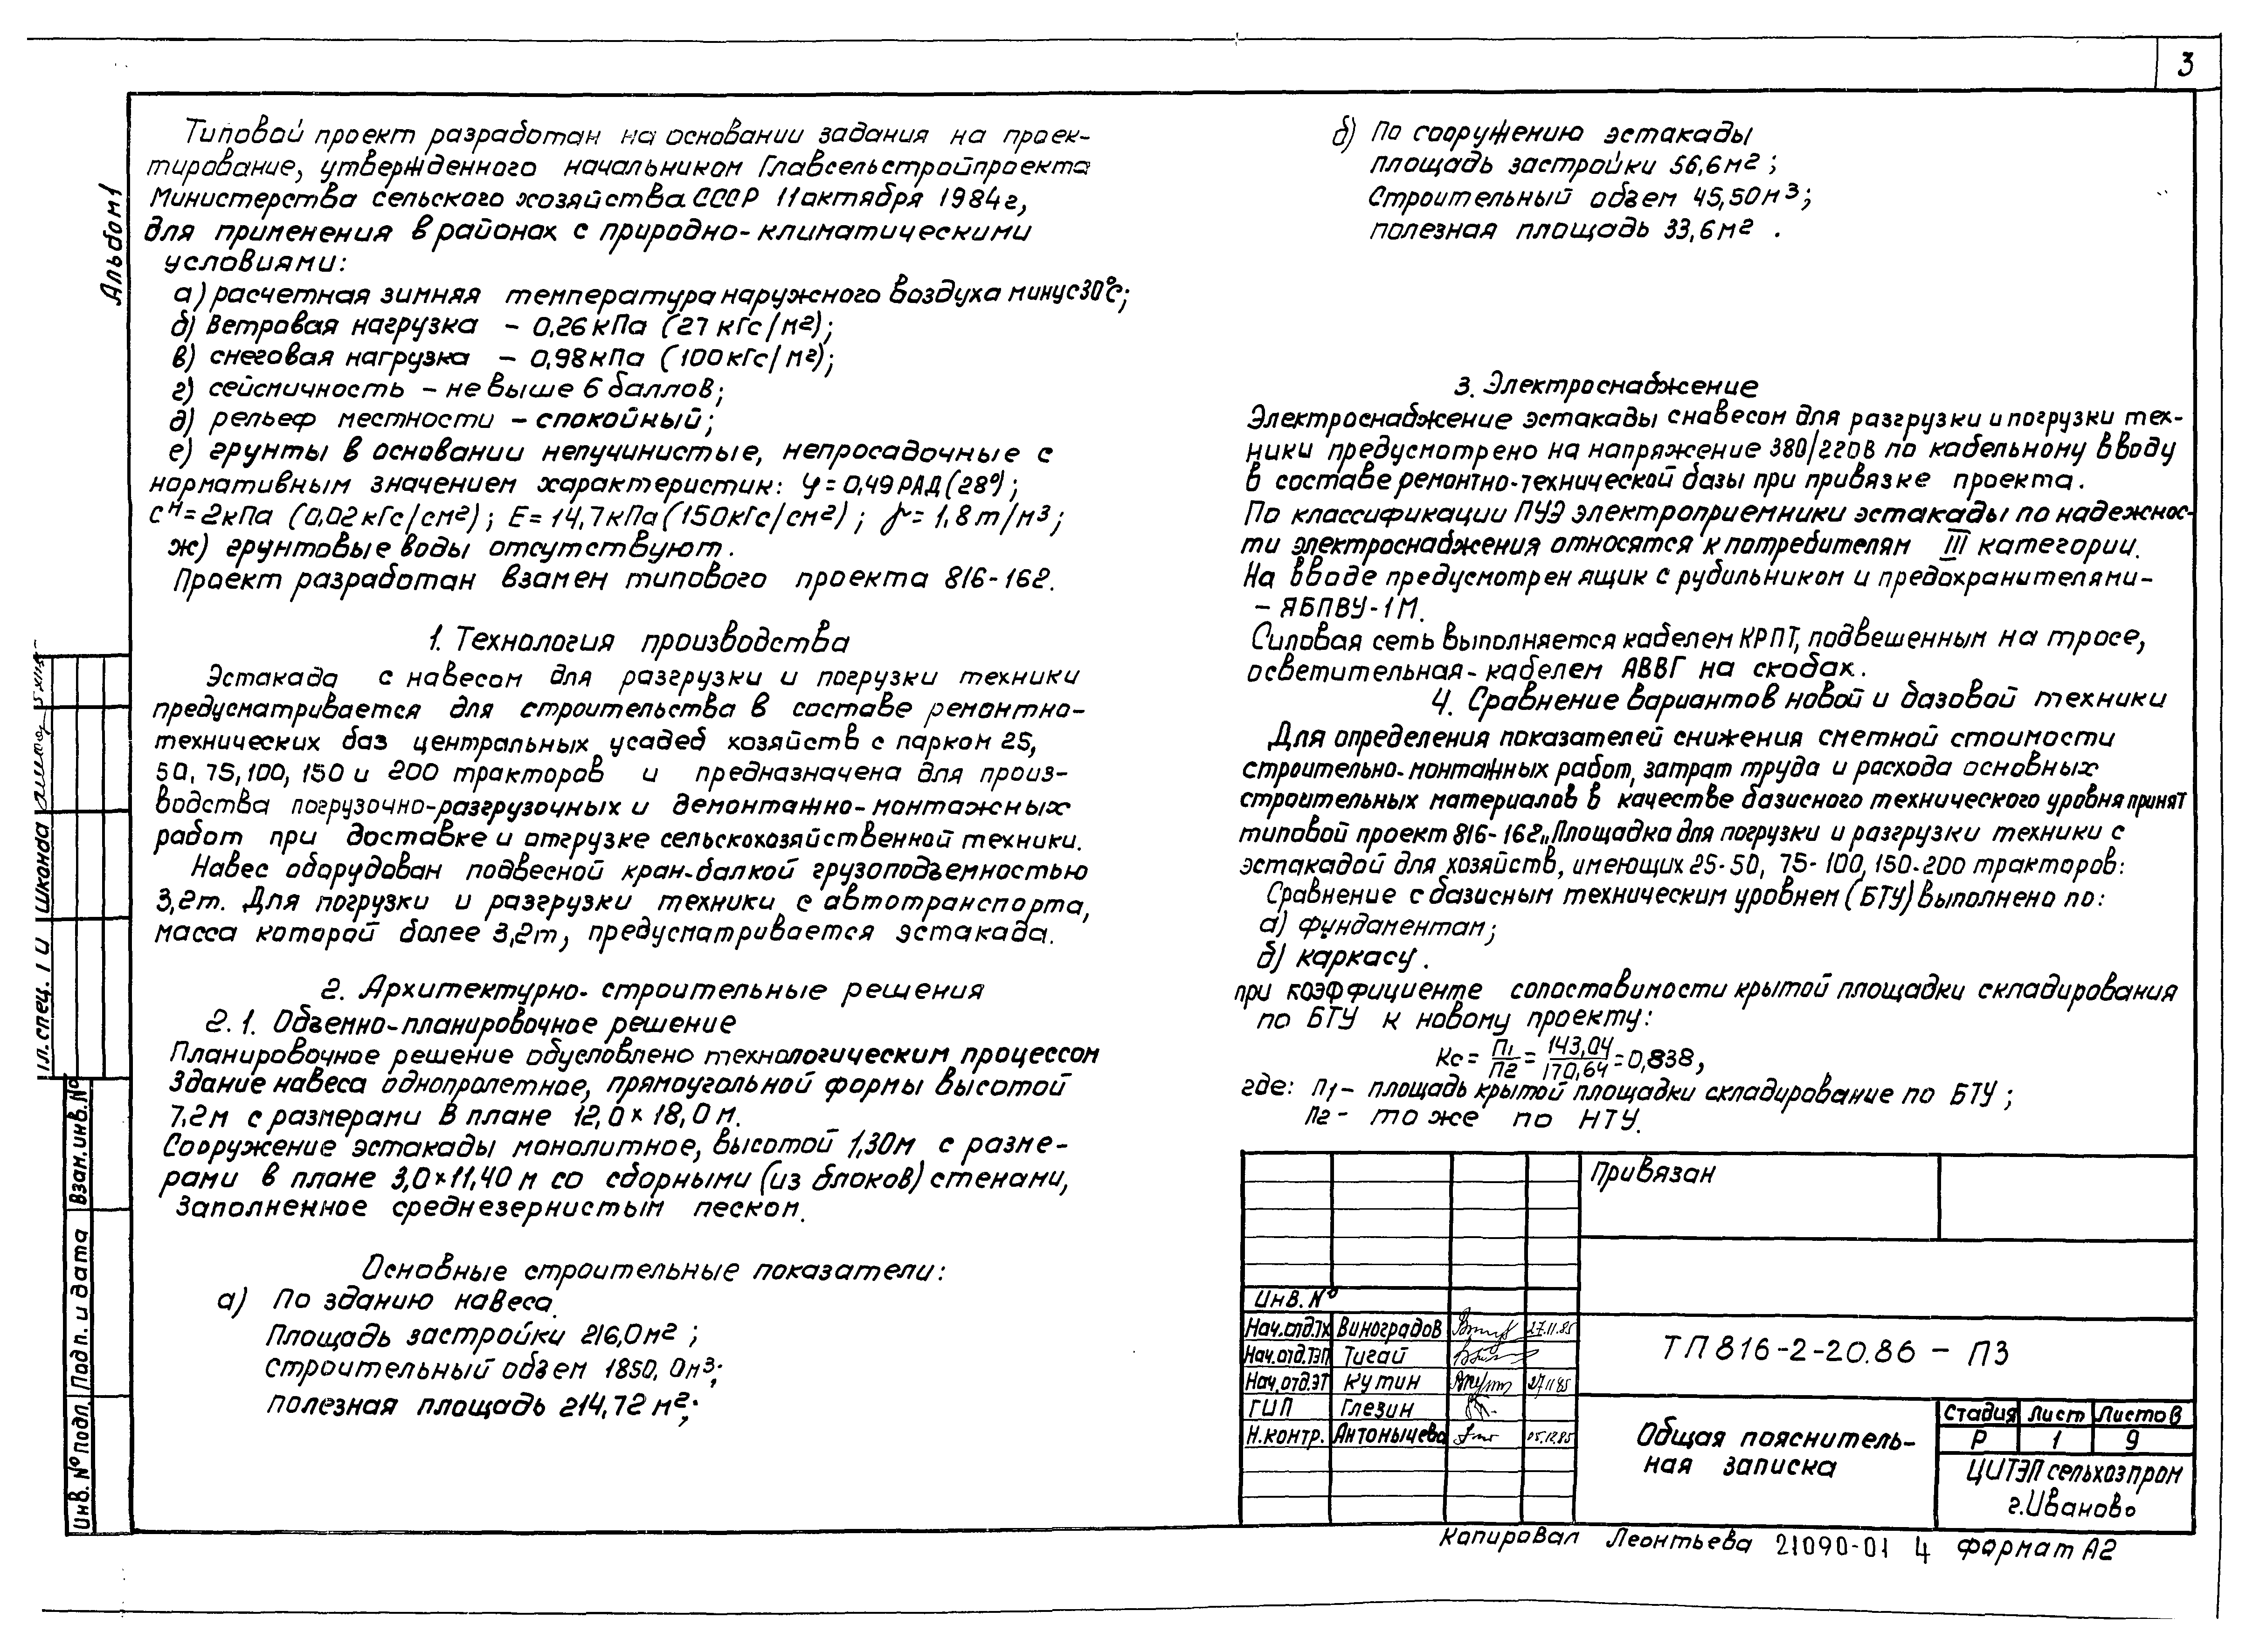 3
Альбом 1
Типовой проект разработан на основании задания на проек-
тирование, утвержденного начальником Главсельстройпроекта
Министерства сельского хозяйства СССР 11 октября 1984г,
для применения в районах с природно-климатическими
условиями:
а) расчетная зимняя температура наружного воздуха минус 30°С;
б) Ветровая нагрузка – 0,26 кПа (27 кгс/м2);
в) снеговая нагрузка – 0,98 кПа (100 кгс/м2);
г) сейсмичность – не выше 6 баллов;
д) рельеф местности – спокойный;
е) грунты в основании непучинистые, непросадочные с
нормативным значением характеристик: φ = 0,49 РАД (28°);
Cн = 2кПа (0,02 кгс/см2); E = 14,7 кПа (150 кгс/см2); γ = 1,8 т/м3;
ж) грунтовые воды отсутствуют.
Проект разработан взамен типового проекта 816-162.
1. Технология производства
Эстакада с навесом для разгрузки и погрузки техники
предусматривается для строительства в составе ремонтно-
технических баз центральных усадеб хозяйств с парком 25,
50, 75, 100, 150 и 200 тракторов и предназначена для произ-
водства погрузочно-разгрузочных и демонтажно-монтажных
работ при доставке и отгрузке сельскохозяйственной техники.
Навес оборудован подвесной кран-балкой грузоподъемностью
3,2т. Для погрузки и разгрузки техники с автотранспорта,
масса которой более 3,2т, предусматривается эстакада.
2. Архитектурно-строительные решения
2.1. Объемно-планировочное решение
Планировочное решение обусловлено технологическим процессом
Здание навеса однопролетное, прямоугольной формы высотой
7,2м с размерами в плане 12,0 × 18,0 м.
Сооружение эстакады монолитное, высотой 1,30м с разме-
рами в плане 3,0×11,40 м со сборными (из блоков) стенами,
Заполненное среднезернистым песком.
Основные строительные показатели:
а) По зданию навеса.
Площадь застройки 216,0м2;
строительный объем 1850,0м3;
полезная площадь 214,72 м2;
б) По сооружению эстакады
площадь застройки 56,6м2;
Строительный объем 45,50м3;
полезная площадь 33,6м2.
3. Электроснабжение
Электроснабжение эстакады с навесом для разгрузки и погрузки тех-
ники предусмотрено на напряжение 380/220В по кабельному вводу
в составе ремонтно-технической базы при привязке проекта.
По классификации ПУЭ электроприемники эстакады по надежнос-
ти электроснабжения относятся к потребителям III категории.
На вводе предусмотрен ящик с рубильником и предохранителями-
– ЯБПВУ-1М.
Силовая сеть выполняется кабелем КРПТ, подвешенным на тросе,
осветительная - кабелем АВВГ на скобах.
4. Сравнение вариантов новой и базовой техники
Для определения показателей снижения сметной стоимости
строительно-монтажных работ, затрат труда и расхода основных
строительных материалов в качестве базисного технического уровня принят
типовой проект 816-162 „Площадка для погрузки и разгрузки техники с
эстакадой для хозяйств, имеющих 25-50, 75-100, 150-200 тракторов:
Сравнение с базисным техническим уровнем (БТУ) выполнено по:
а) фундаментам;
б) каркасу.
при коэффициенте сопоставимости крытой площадки складирования
по БТУ к новому проекту:
Кс = П1/П2 = 143,04/170,64 = 0,838,
где: П1 – площадь крытой площадки складирование по БТУ;
П2 – то же по НТУ.
Привязан
Инв. №
Нач.отд.ТХ Виноградов 27.11.85
Нач.отд.ТЭП Тигай
Нач.отд.ЭТ Кутин 27.11.85
ГИП Глезин
Н.контр. Антонычева 05.12.85
ТП 816-2-20.86 – ПЗ
Общая пояснитель-
ная записка
Стадия Лист Листов
Р 1 9
ЦИТЭПсельхозпром
г.Иваново
Копировал Леонтьева 21090-01 4 формат А2
Гл. спец. Шконда
Взам. инв. №
Подп. и дата
Инв. № подл.